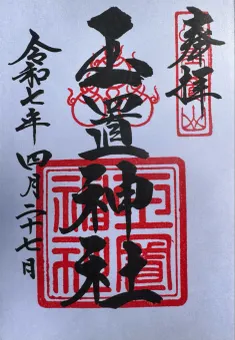 奉拝
玉置神社
令和七年四月二十七日
玉置神社